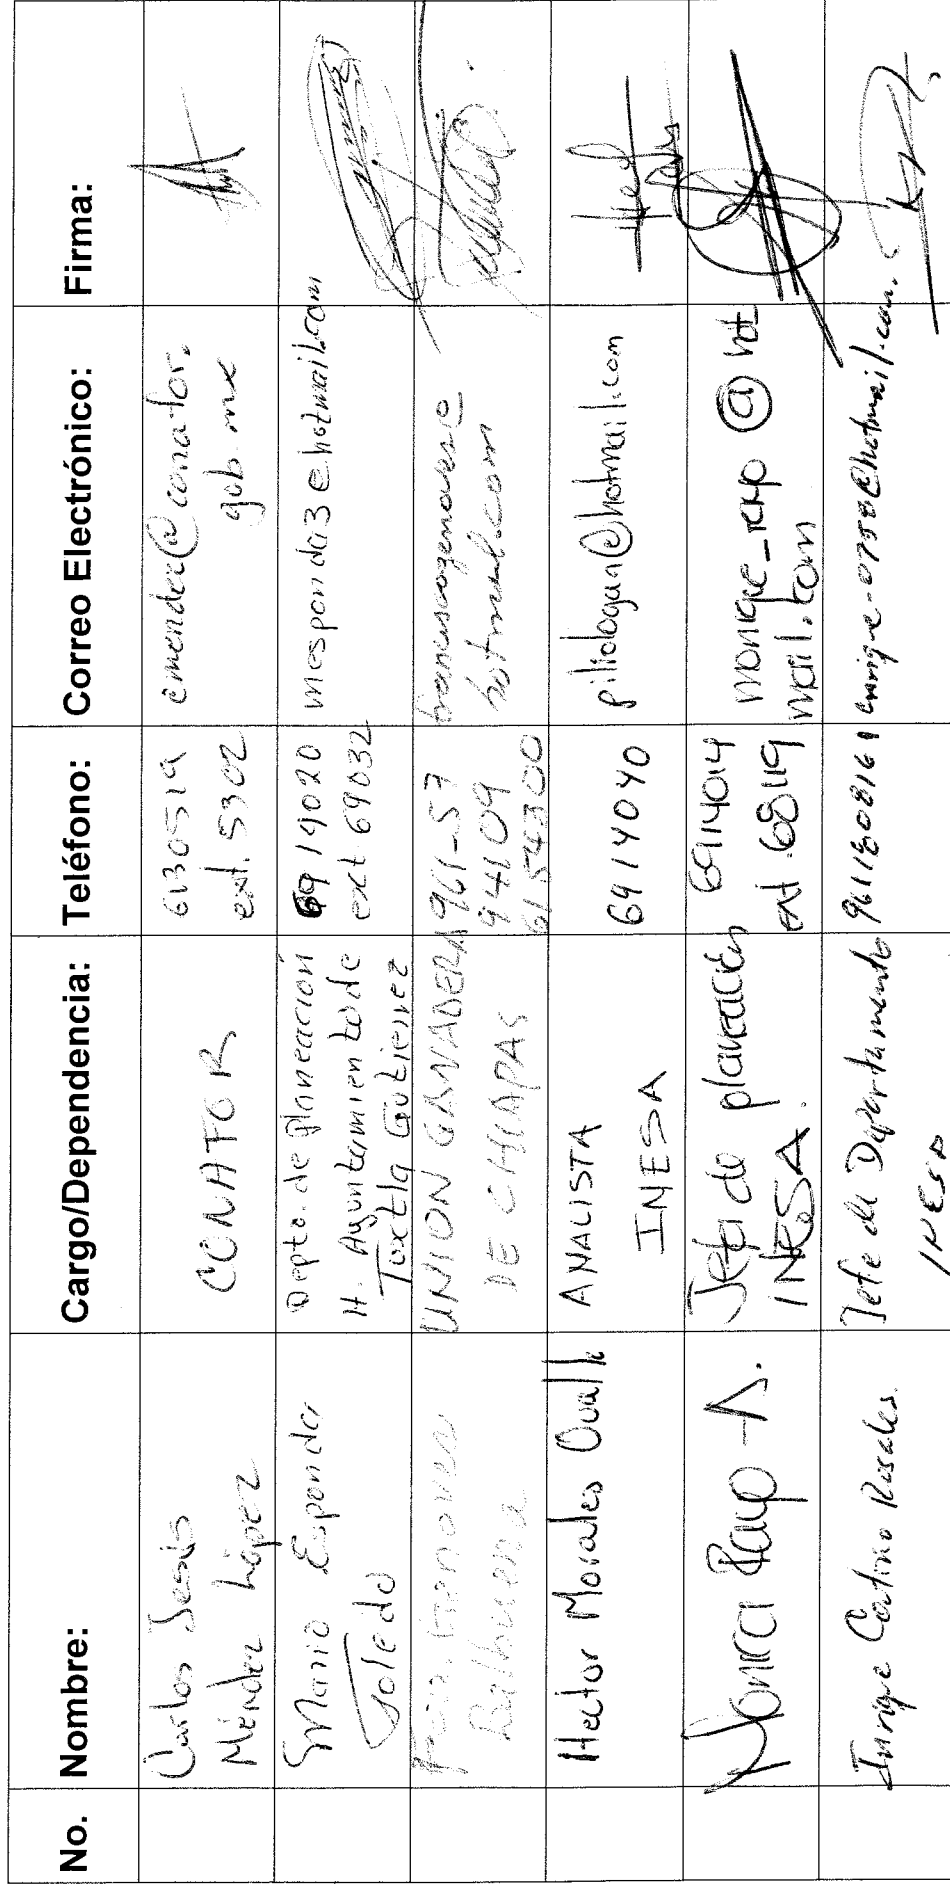 No. Nombre: Cargo/Dependencia: Teléfono: Correo Electrónico: Firma:
Carlos Jesús
Méndez López
CONAFOR
6130519
ext. 5302
cmendez@conafor.
gob.mx
Mario Esponda
Toledo
Depto. de planeación
H. Ayuntamiento de
Tuxtla Gutierrez
6919020
ext 69032
mesponda3@hotmail.com
UNION GANADERA
DE CHIAPAS
961-57
94109
6154300
hotmail.com
Hector Morales Ovalle
ANALISTA
INESA
6914040
piliologan@hotmail.com
A.
Jefa de planeación
INESA.
6914014
ext. 68119
@hot
mail.com
Enrique Rosales
Jefe de Departamento
INESA
9611808161